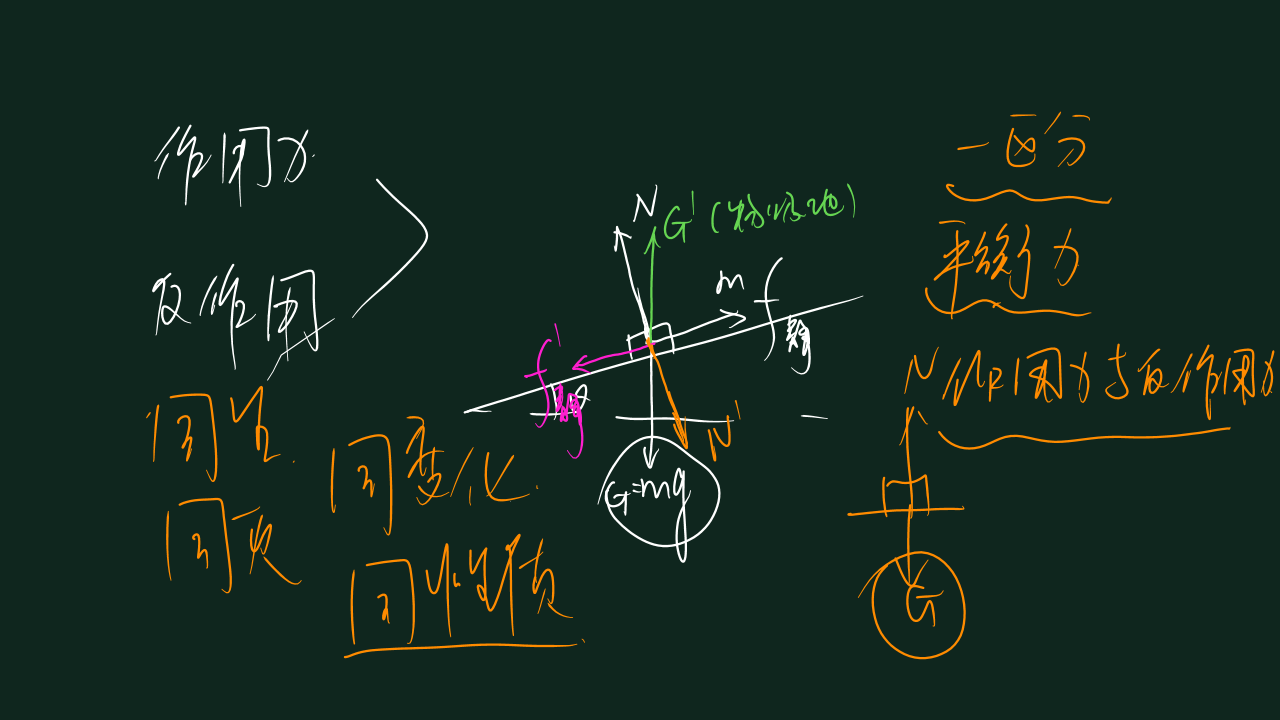 作用力
反作用
同生
同灭
同变化
同性质
N
G'(物吸地)
m
f静
f'静
α
N'
G=mg
一区分
平衡力
作用力与反作用力
N
G